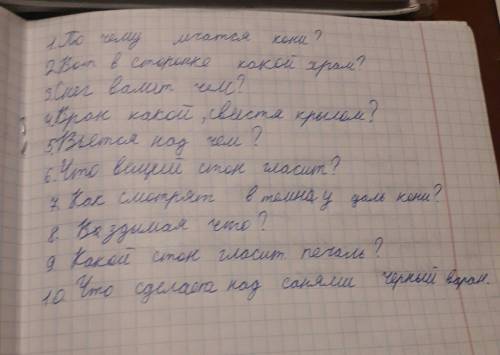 1. По чему мчатся кони?
2. Вот в сторонке какой храм?
3. Снег валит чем?
4. Вран какой, свистя крылом?
5. Вьётся над чем?
6. Что вещий стон гласит?
7. Как смотрят в темную даль кони?
8. Воздымая что?
9. Какой стон гласит печаль?
10 Что сделает над санями черный варан.